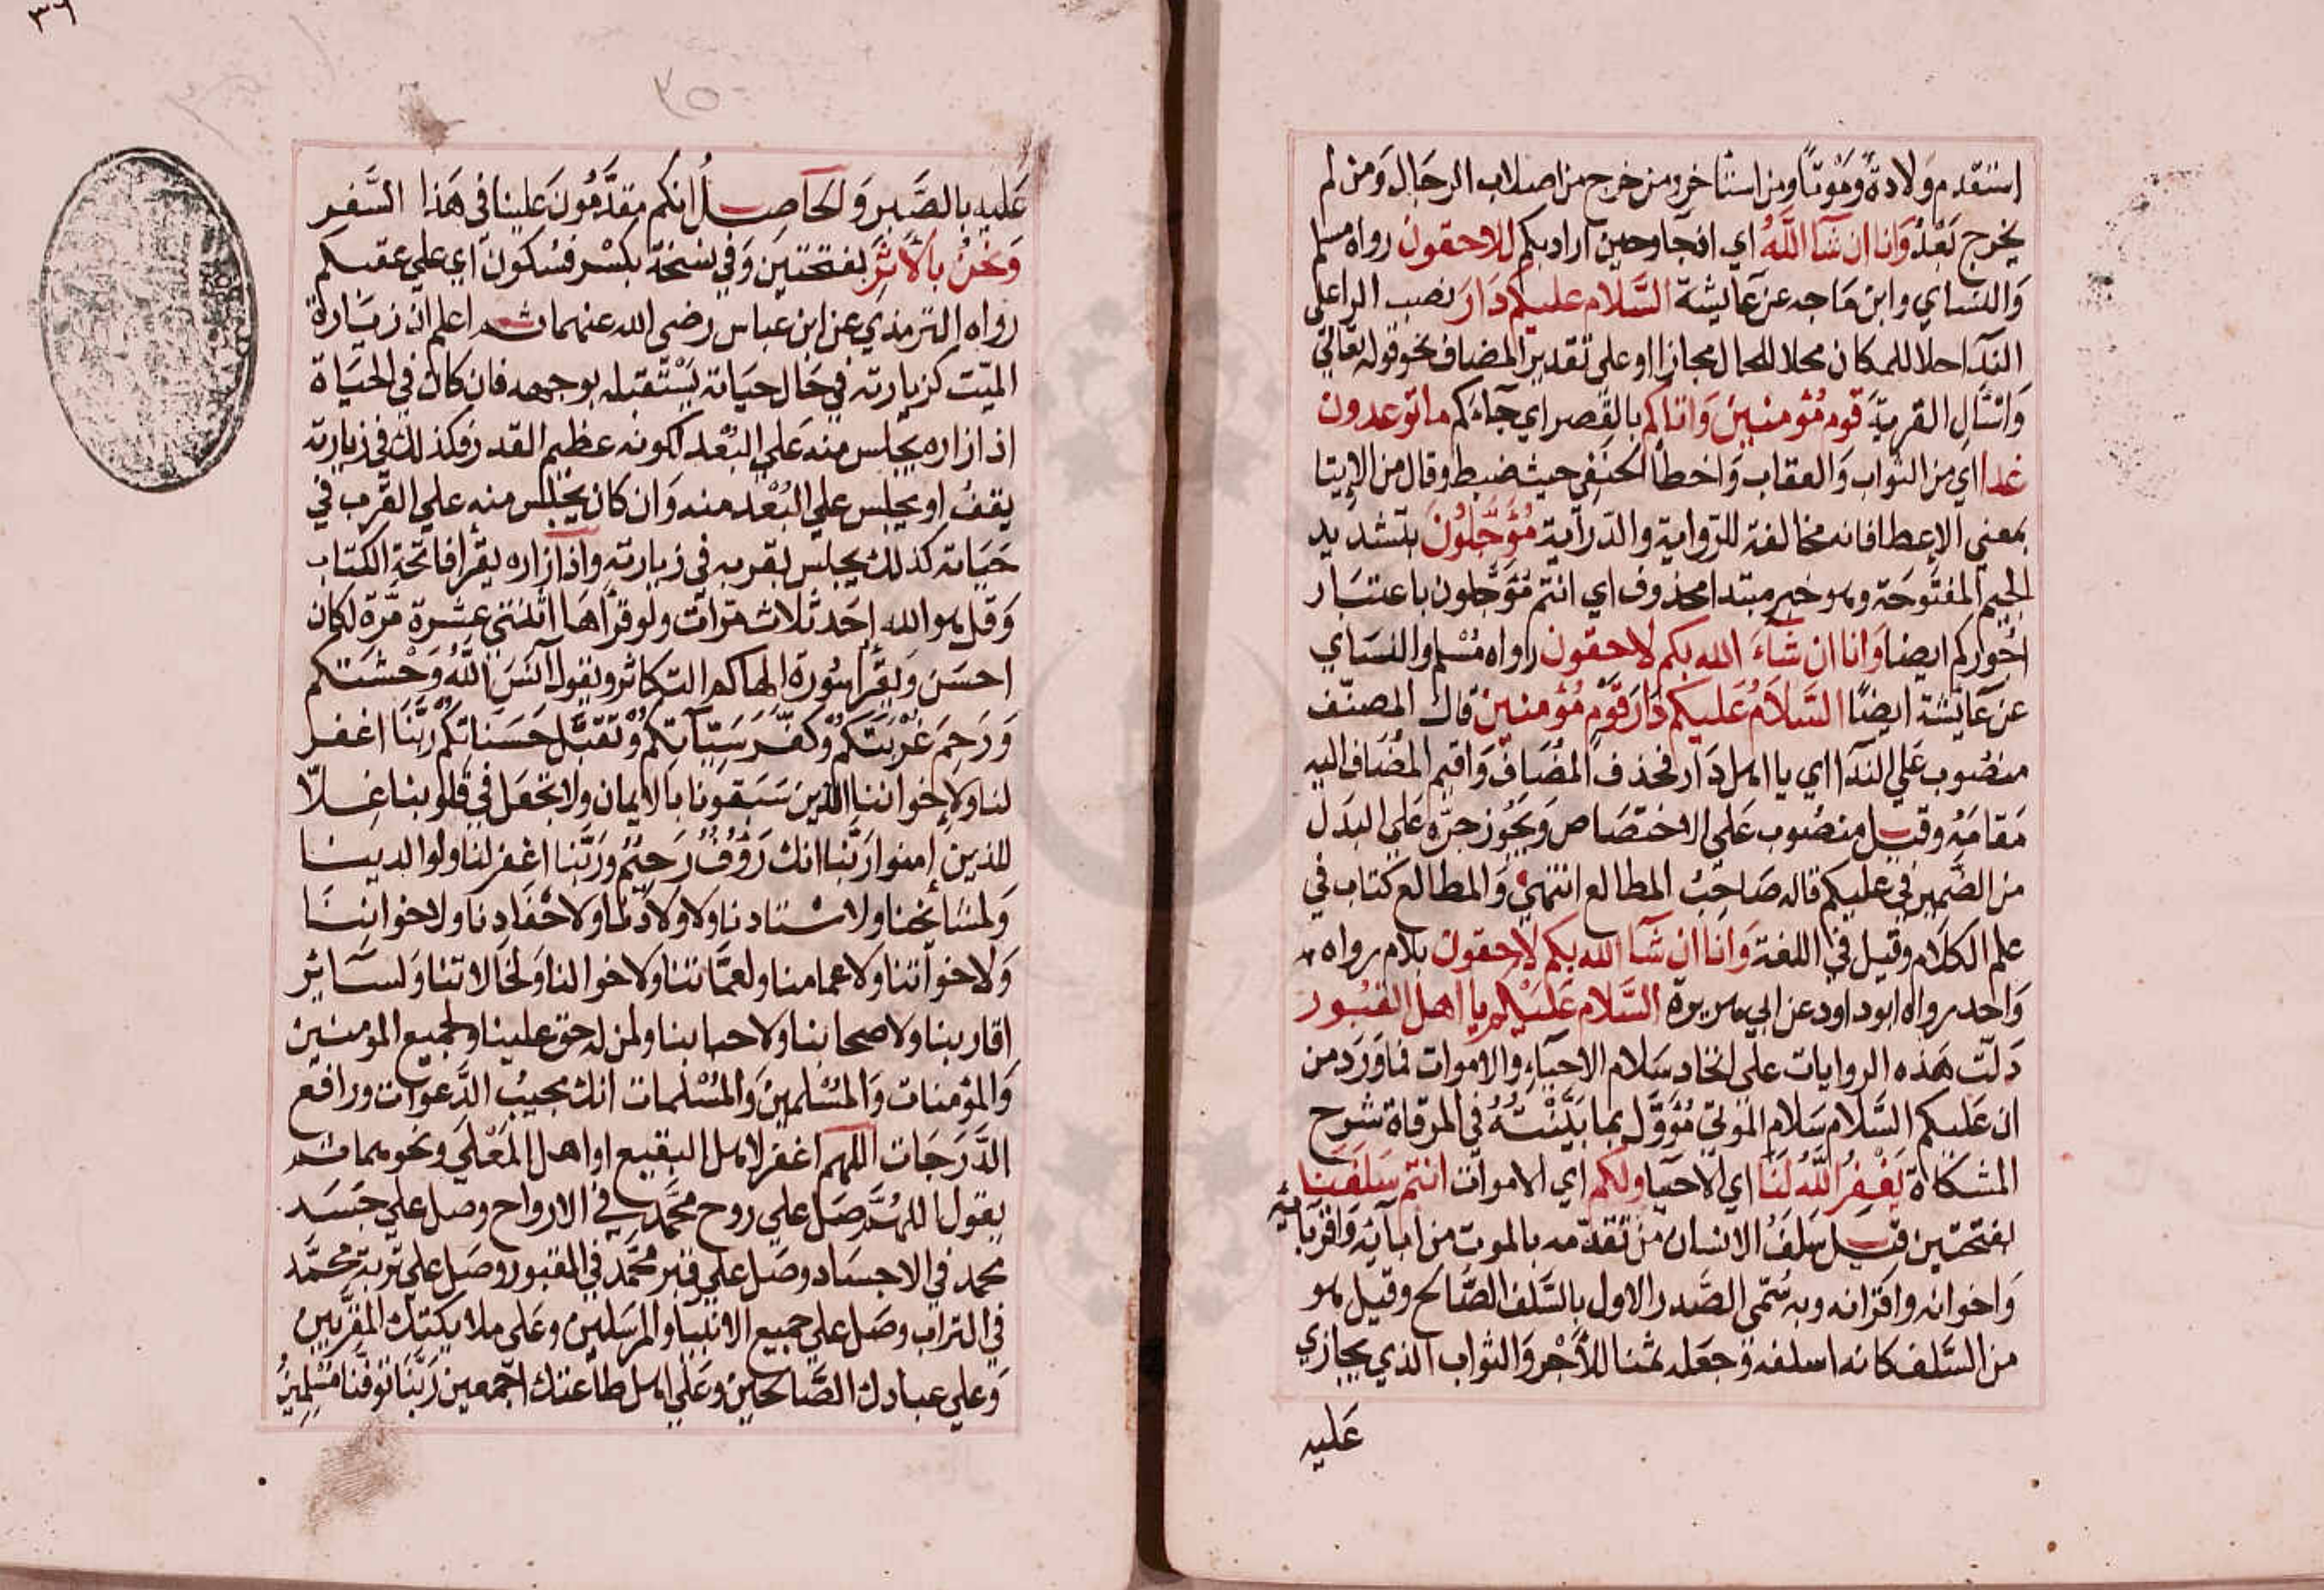 استقدم ولادة وموتا ومن استأخر ومن خرج من اصلاب الرجال ومن لم
يخرج بعد وانا ان شآ الله اي اتجاوحين اراد بكم للاحقون رواه مسلم
والنساي وابن ماجه عن عايشة السلام عليكم دار نصب الراعلى
الندآ احلا للمكان محلا للحال مجازا اوعلى تقدير المضاف نحو قوله تعالي
واسأل القرية قوم مؤمنين واتاكم بالقصر اي جآءكم ما توعدون
غدا اي من الثواب والعقاب واخطأ الحنفي حيث ضبط وقال من الايتا
بمعني الاعطا فانه مخالفة للرواية والدراية مؤجلون بتشديد
الجيم المفتوحة وهو خبر مبتدا محذوف اي انتم مؤجلون باعتبار
اجوركم ايضا وانا ان شاء الله بكم لاحقون رواه مسلم والنساي
عن عايشة ايضا السلام عليكم دار قوم مؤمنين قال المصنف
منصوب علي الندآ اي يا اهل دار فحذف المضاف واقيم المضاف اليه
مقامه وقيل منصوب علي الاختصاص ويجوز جره علي البدل
من الضمير في عليكم قاله صاحب المطالع انتهي والمطالع كتاب في
علم الكلام وقيل في اللغة وانا ان شآ الله بكم لاحقون بلام رواه
واحد رواه ابوداود عن ابي هريرة السلام عليكم يا اهل القبور
دلت هذه الروايات على اتحاد سلام الاحياء والاموات فما ورد من
ان عليكم السلام سلام الموتي مؤول بما بينته في المرقاة شرح
المشكاة يغفر الله لنا اي الاحيا ولكم اي الاموات انتم سلفنا
بفتحتين قيل سلف الانسان من تقدمه بالموت من ابآئه واقربائه
واخوانه واقرانه وبه سمي الصدر الاول بالسلف الصالح وقيل هو
من السلف كانه اسلفه وجعله ثمنا للأجر والثواب الذي يجازي
عليه
٣٦
٣٥
عليه بالصبر والحاصل انكم مقدمون علينا في هذا السفر
ونحن بالاثر بفتحتين وفي نسخة بكسر فسكون اي علي عقبكم
رواه الترمذي عن ابن عباس رضي الله عنهما ثم اعلم ان زيارة
الميت كزيارته في حال حياته يستقبله بوجهه فان كان في الحياة
اذا زاره يجلس منه علي البعد لكونه عظيم القدر فكذلك في زيارته
يقف او يجلس علي البعد منه وان كان يجلس منه علي القرب في
حياته كذلك يجلس بقربه في زيارته واذا زاره يقرا فاتحة الكتاب
وقل هو الله احد ثلاث مرات ولو قراها اثنتي عشرة مرة لكان
احسن ويقرأ سورة الهاكم التكاثر ويقول آنس الله وحشتكم
ورحم غربتكم وكفر سيآتكم وتقبل حسناتكم ربنا اغفر
لنا ولاخواننا الذين سبقونا بالايمان ولا تجعل في قلوبنا غلا
للذين امنوا ربنا انك رؤف رحيم وربنا اغفر لنا ولوالدينا
ولمشايخنا ولاستادنا ولاولادنا ولاحفادنا ولاخواننا
ولاخواتنا ولاعمامنا ولعماتنا ولاخوالنا ولخالاتنا ولسآئر
اقاربنا ولاصحابنا ولاحبابنا ولمن له حق علينا ولجميع المومنين
والمؤمنات والمسلمين والمسلمات انك مجيب الدعوات ورافع
الدرجات اللهم اغفر لاهل البقيع او اهل المعلي ونحوهما ثم
يقول اللهم صل علي روح محمد في الارواح وصل علي جسد
محمد في الاجساد وصل علي قبر محمد في القبور وصل علي تربة محمد
في التراب وصل علي جميع الانبيا والمرسلين وعلي ملايكتك المقربين
وعلي عبادك الصالحين وعلي اهل طاعتك اجمعين ربنا توفنا مسلمين